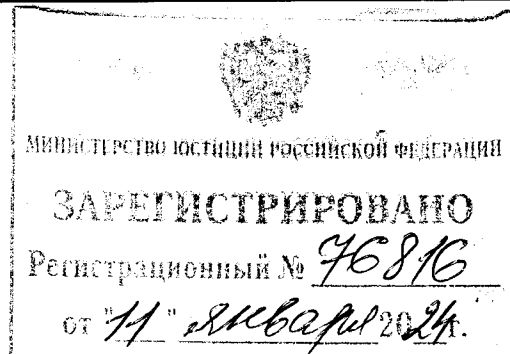 МИНИСТЕРСТВО ЮСТИЦИИ РОССИЙСКОЙ ФЕДЕРАЦИИ
ЗАРЕГИСТРИРОВАНО
Регистрационный № 76816
от "11" января 2024г.